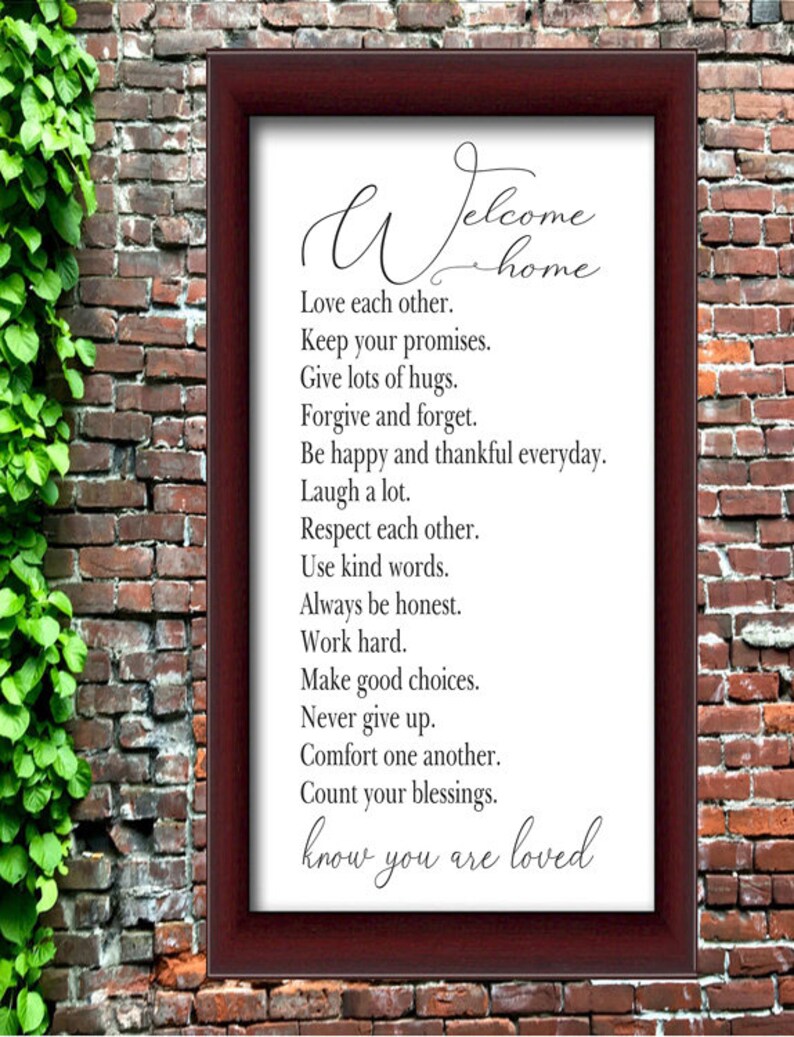 Welcome
home
Love each other.
Keep your promises.
Give lots of hugs.
Forgive and forget.
Be happy and thankful everyday.
Laugh a lot.
Respect each other.
Use kind words.
Always be honest.
Work hard.
Make good choices.
Never give up.
Comfort one another.
Count your blessings.
know you are loved